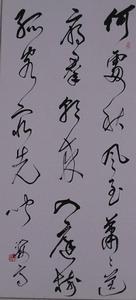 何處秋風至蕭蕭送
雁群朝來入庭樹
孤客最先聞